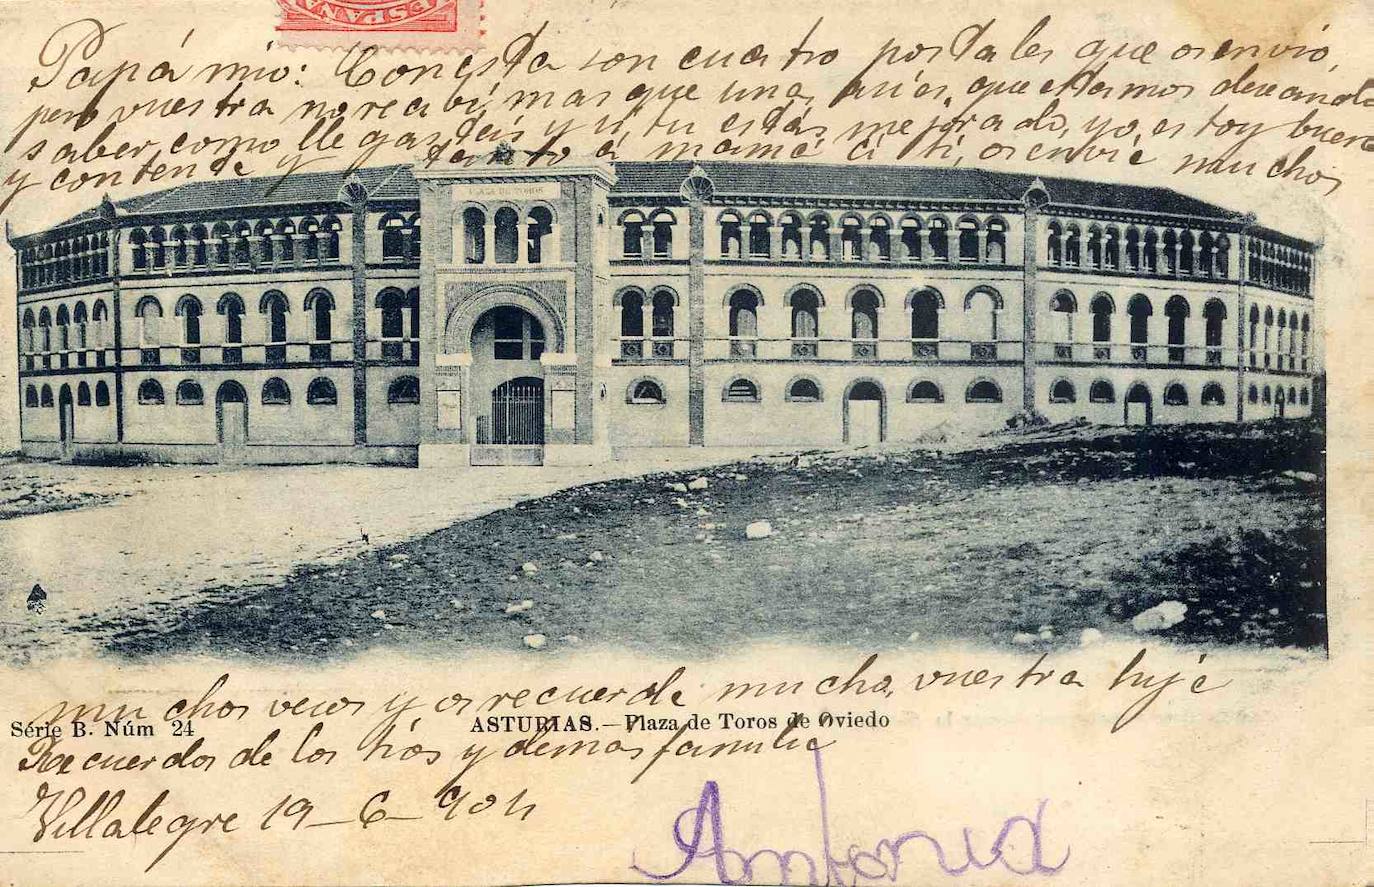 ESPAÑA
Papá mio: Con esta son cuatro postales que os envio,
pero vuestra no recibi, mas que una, asi es, que estamos deseando
saber, como llegasteis y si, tu estás mejorado, yo, estoy buena
y contende y tanto a mamá ci ti, os envie muchos
PLAZA DE TOROS
muchos vesos y os recuerde mucho, vuestra hije
Série B. Núm 24
ASTURIAS.—Plaza de Toros de Oviedo
Recuerdos de los tios y demas familie
Villalegre 19-6-904
Antonia